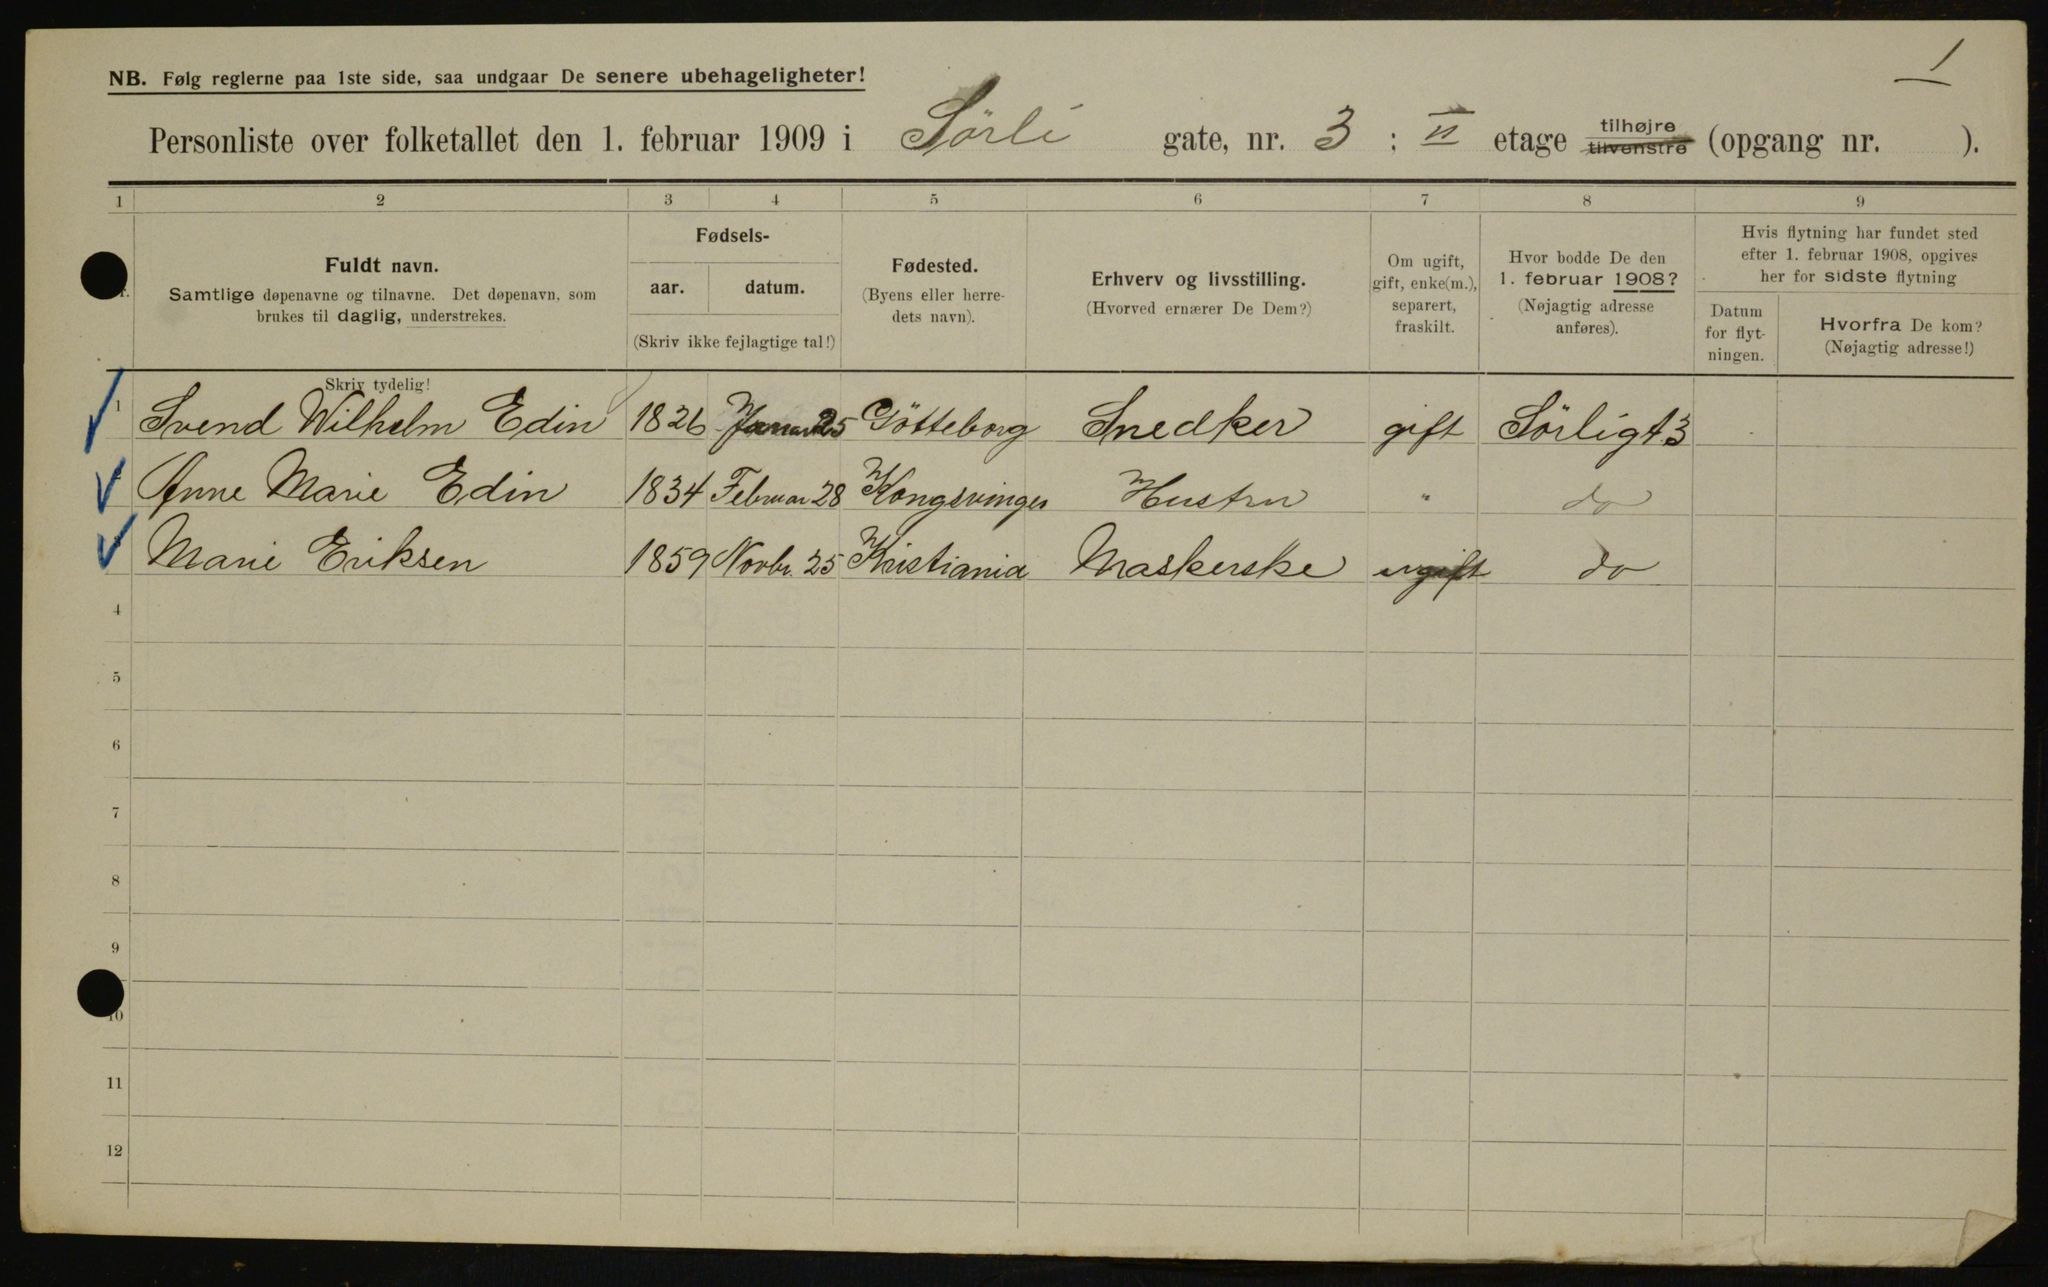 1
NB. Følg reglerne paa 1ste side, saa undgaar De senere ubehageligheter!
Personliste over folketallet den 1. februar 1909 i Sörli gate, nr. 3 : II etage tilhøjre tilvenstre (opgang nr. ).
1 2 3 4 5 6 7 8 9
Fuldt navn.
Samtlige døpenavne og tilnavne. Det døpenavn, som
brukes til daglig, understrekes.
Skriv tydelig!
Fødsels-
aar. datum.
(Skriv ikke fejlagtige tal!)
Fødested.
(Byens eller herre-
dets navn).
Erhverv og livsstilling.
(Hvorved ernærer De Dem?)
Om ugift,
gift, enke(m.),
separert,
fraskilt.
Hvor bodde De den
1. februar 1908?
(Nøjagtig adresse
anføres).
Hvis flytning har fundet sted
efter 1. februar 1908, opgives
her for sidste flytning
Datum
for flyt-
ningen.
Hvorfra De kom?
(Nøjagtig adresse!)
1 Svend Wilhelm Edin 1826 Januar 25 Götteborg Snedker gift Sörligt 3
Anne Marie Edin 1834 Februar 28 Kongsvinger Hustru " do
Marie Eriksen 1859 Novbr. 25 Kristiania Maskerske ugift do
4
5
6
7
8
9
10
11
12